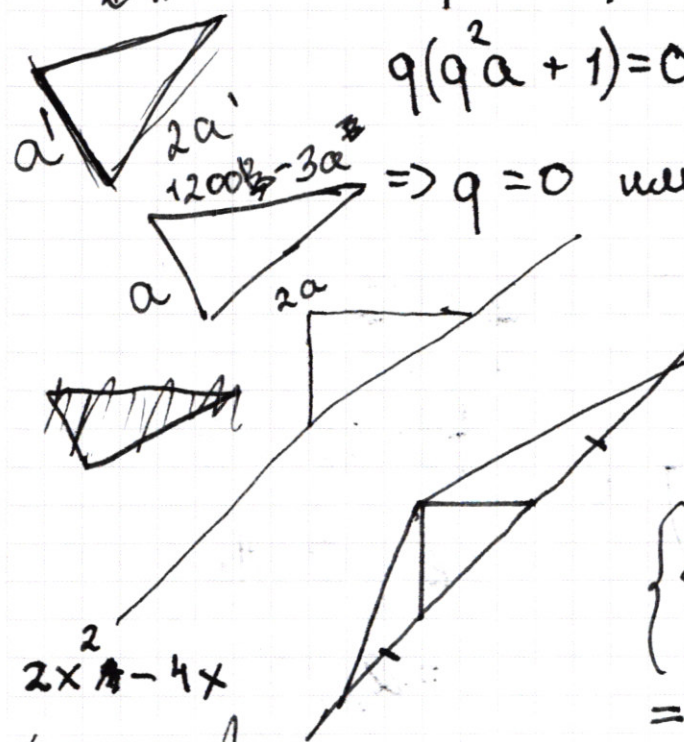 q(q²a + 1)=0
a'
2a'
1200 - 3a
=> q = 0 или
a
2a
2x² - 4x
=